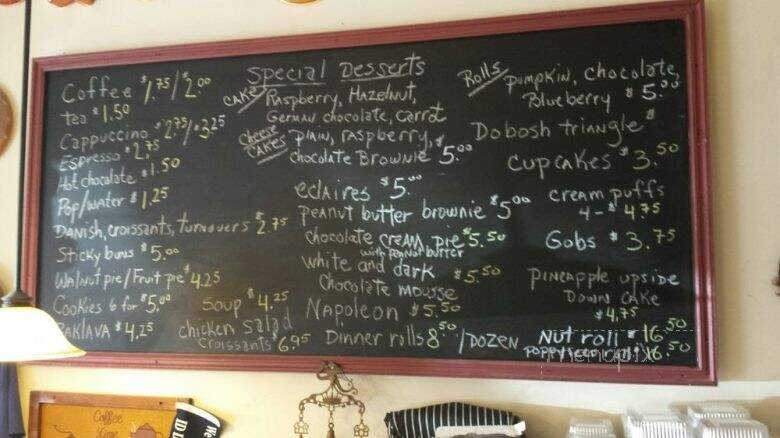 Coffee $1.75/$2.00
tea $1.50
Cappuccino $2.75/$3.25
Espresso $2.75
Hot chocolate $1.50
Pop/water $1.25
Danish, croissants, turnovers $2.75
Sticky buns $5.00
Walnut pie/Fruit pie $4.25
Cookies 6 for $5.00
BAKLAVA $4.25
Soup $4.25
chicken salad
croissants $6.95
Special Desserts
CAKE Raspberry, Hazelnut,
German chocolate, carrot
CHEESE CAKES plain, raspberry,
chocolate Brownie $5.00
eclaires $5.00
peanut butter brownie $5.00
chocolate cream pie $5.50
with peanut butter
white and dark
chocolate mousse $5.50
Napoleon $5.50
Dinner rolls 8.50/DOZEN
Rolls pumpkin, chocolate,
Blueberry $5.00
Dobosh triangle $
cupcakes $3.50
cream puffs
4- $4.75
Gobs $3.75
pineapple upside
DOWN CAKE
$4.75
Nut roll $16.50
poppyseed roll $16.50
menupix
Coffee
Time